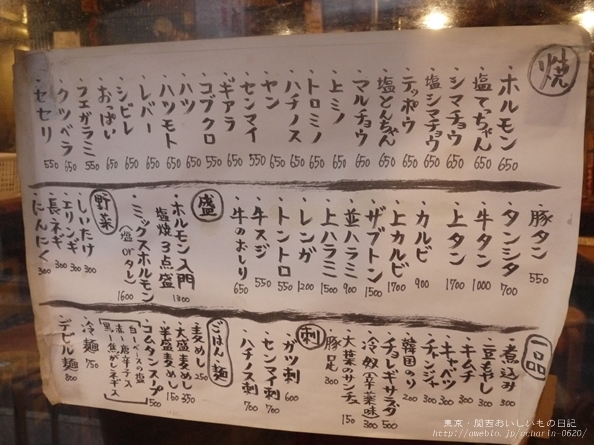 焼
・ホルモン 650
・塩てっちゃん 650
・シマチョウ 650
・塩シマチョウ 650
・テッポウ 650
・塩とんちゃん 550
・マルチョウ 650
・上ミノ 650
・トロミノ 650
・ハチノス 650
・ヤン 650
・センマイ 650
・ギアラ 650
・コブクロ 550
・ハツ 650
・ハツモト 650
・レバー 650
・シビレ 650
・おっぱい 650
・フエガラミ 550
・クツベラ 650
・セセリ 550
・豚タン 550
・タンシタ 700
・牛タン 1000
・上タン 1700
・カルビ 900
・上カルビ 1700
・ザブトン 1500
・並ハラミ 900
・上ハラミ 1500
・レンガ 1200
・トントロ 550
・牛スジ 550
・牛のおしり 650
盛
・ホルモン入門
塩焼3点盛 1800
・ミックスホルモン
(塩orタレ) 1600
野菜
・しいたけ 300
・エリンギ 300
・長ネギ 300
・にんにく 300
一品
・煮込み 300
・豆もやし 300
・キムチ 300
・キャベツ 300
・チャンジャ 300
・韓国のり 200
・チョレギサラダ 500
・冷奴
・大葉のサンチュ 150
・豚足 300
刺
・ガツ刺 600
・センマイ刺 700
・ハチノス刺 700
ごはん・麺
・麦めし 250
・大盛麦めし 350
・半盛麦めし 150
・コムタンスープ 500
・冷麺 750
・デビル麺 800
東京・関西おいしいもの日記
http://ameblo.jp/ucharin-0620/